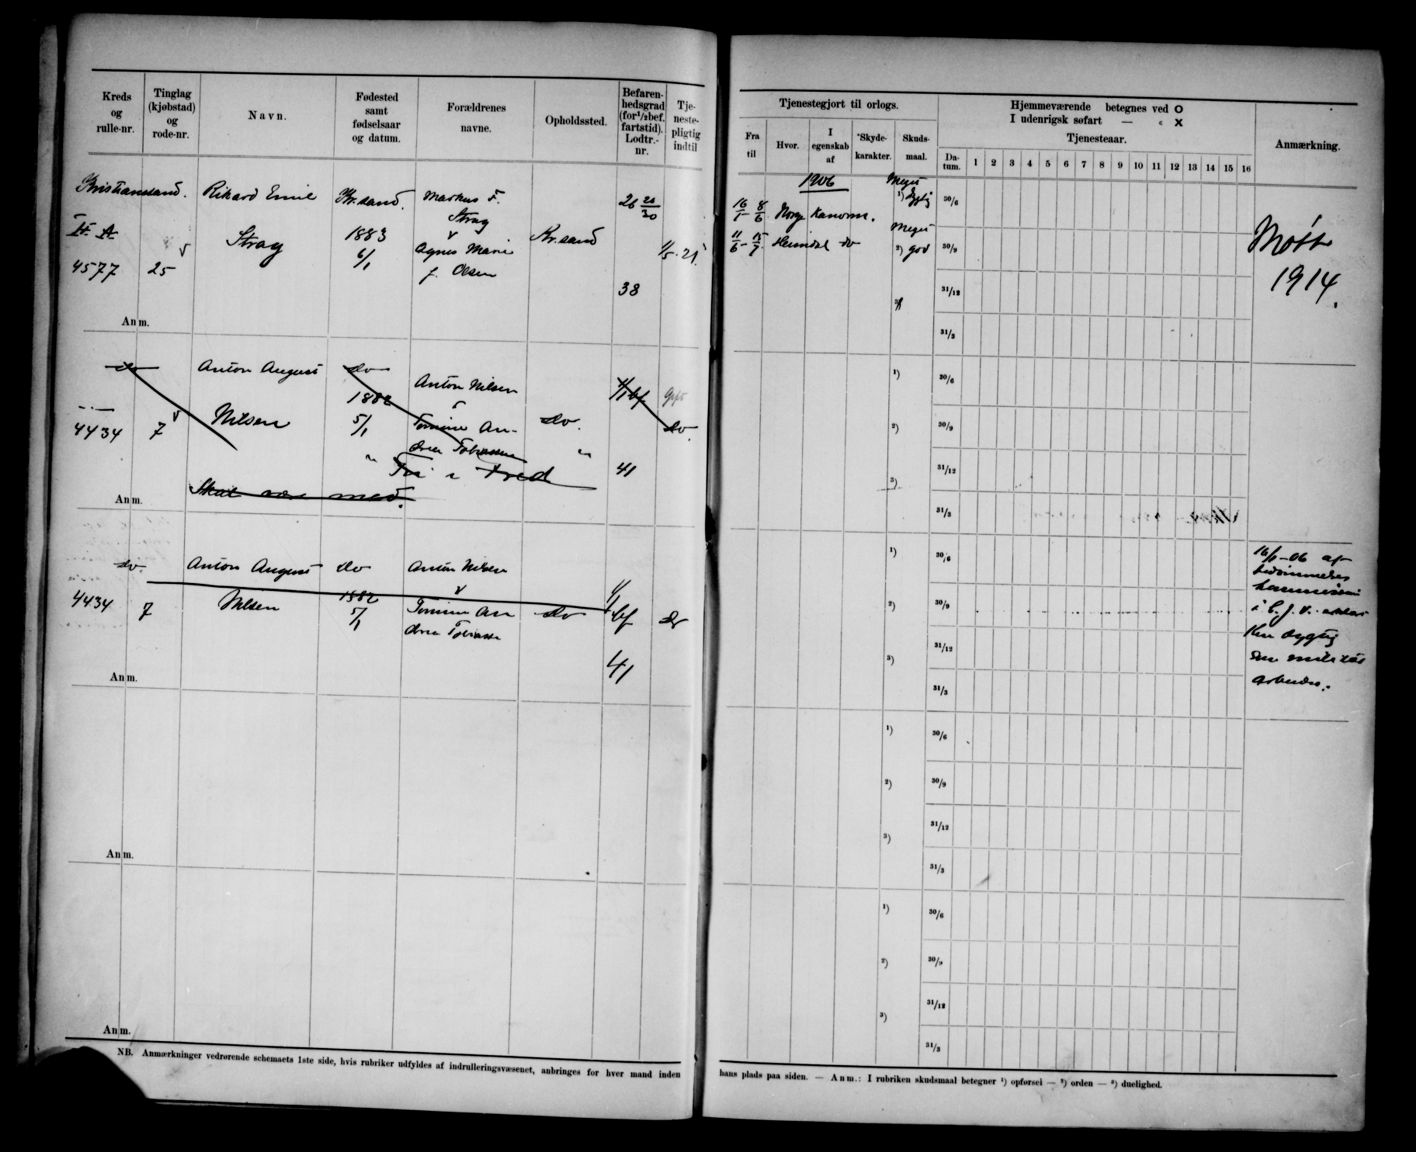 Kreds og rulle-nr.
Tinglag (kjøbstad) og rode-nr.
Navn.
Fødested samt fødselsaar og datum.
Forældrenes navne.
Opholdssted.
Befaren-hedsgrad (for 1/2 bef. fartstid). Lodtr.-nr.
Tje-neste-pligtig indtil
Tjenestegjort til orlogs.
Fra til
Hvor.
I egenskab af
*Skyde-karakter.
Skuds-maal.
Hjemmeværende betegnes ved O
I udenrigsk søfart — « X
Tjenesteaar.
Da-tum. 1 2 3 4 5 6 7 8 9 10 11 12 13 14 15 16
Anmærkning.
Kristiansand. Rikard Emil Kr.sand. Markus F. 26 20/30
Strag
II A Strag 1883 Agnes Marie Kr.sand 1/5.21
6/1 f. Olsen
4577 25 38
Anm.
1906
16/1 8/6 Norge Kanonm. 1) Meget dygtig 30/6
11/6 15/7 Heimdal do 2) Meget god 30/9
3) 31/12
31/3
Møtt
1914.
do Anton August do Anton Nilsen 1/1 bf
1882
4434 7 Nilsen 5/1 Tomine An- do. do.
drea Tobiassen
Fri i Fred 41
Skal være med.
Anm.
1) 30/6
2) 30/9
3) 31/12
31/3
do Anton August do Anton Nilsen 1/1
1882
4434 7 Nilsen 5/1 Tomine An do bf do
drea Tobiassen
41
Anm.
1) 30/6
2) 30/9
3) 31/12
31/3
16/6-06 af
bedømmelses
kommission
Kun dygtig
arbeider.
Anm.
1) 30/6
2) 30/9
3) 31/12
31/3
Anm.
1) 30/6
2) 30/9
3) 31/12
31/3
NB. Anmærkninger vedrørende schemaets 1ste side, hvis rubriker udfyldes af indrulleringsvæsenet, anbringes for hver mand inden
hans plads paa siden. — Anm.: I rubriken skudsmaal betegner 1) opførsel — 2) orden — 3) duelighed.